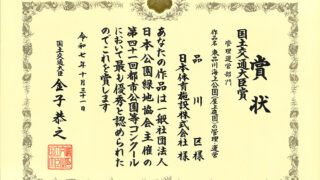 賞状
国土交通大臣賞
管理運営部門
作品名 東品川海上公園(屋上庭園)の管理運営
品川区様
日本体育施設株式会社様
あなたの作品は一般社団法人
日本公園緑地協会主催の
第四十一回都市公園等コンクール
において最も優秀と認められた
のでこれを賞します
令和七年十月三十一日
国土交通大臣 金子恭之